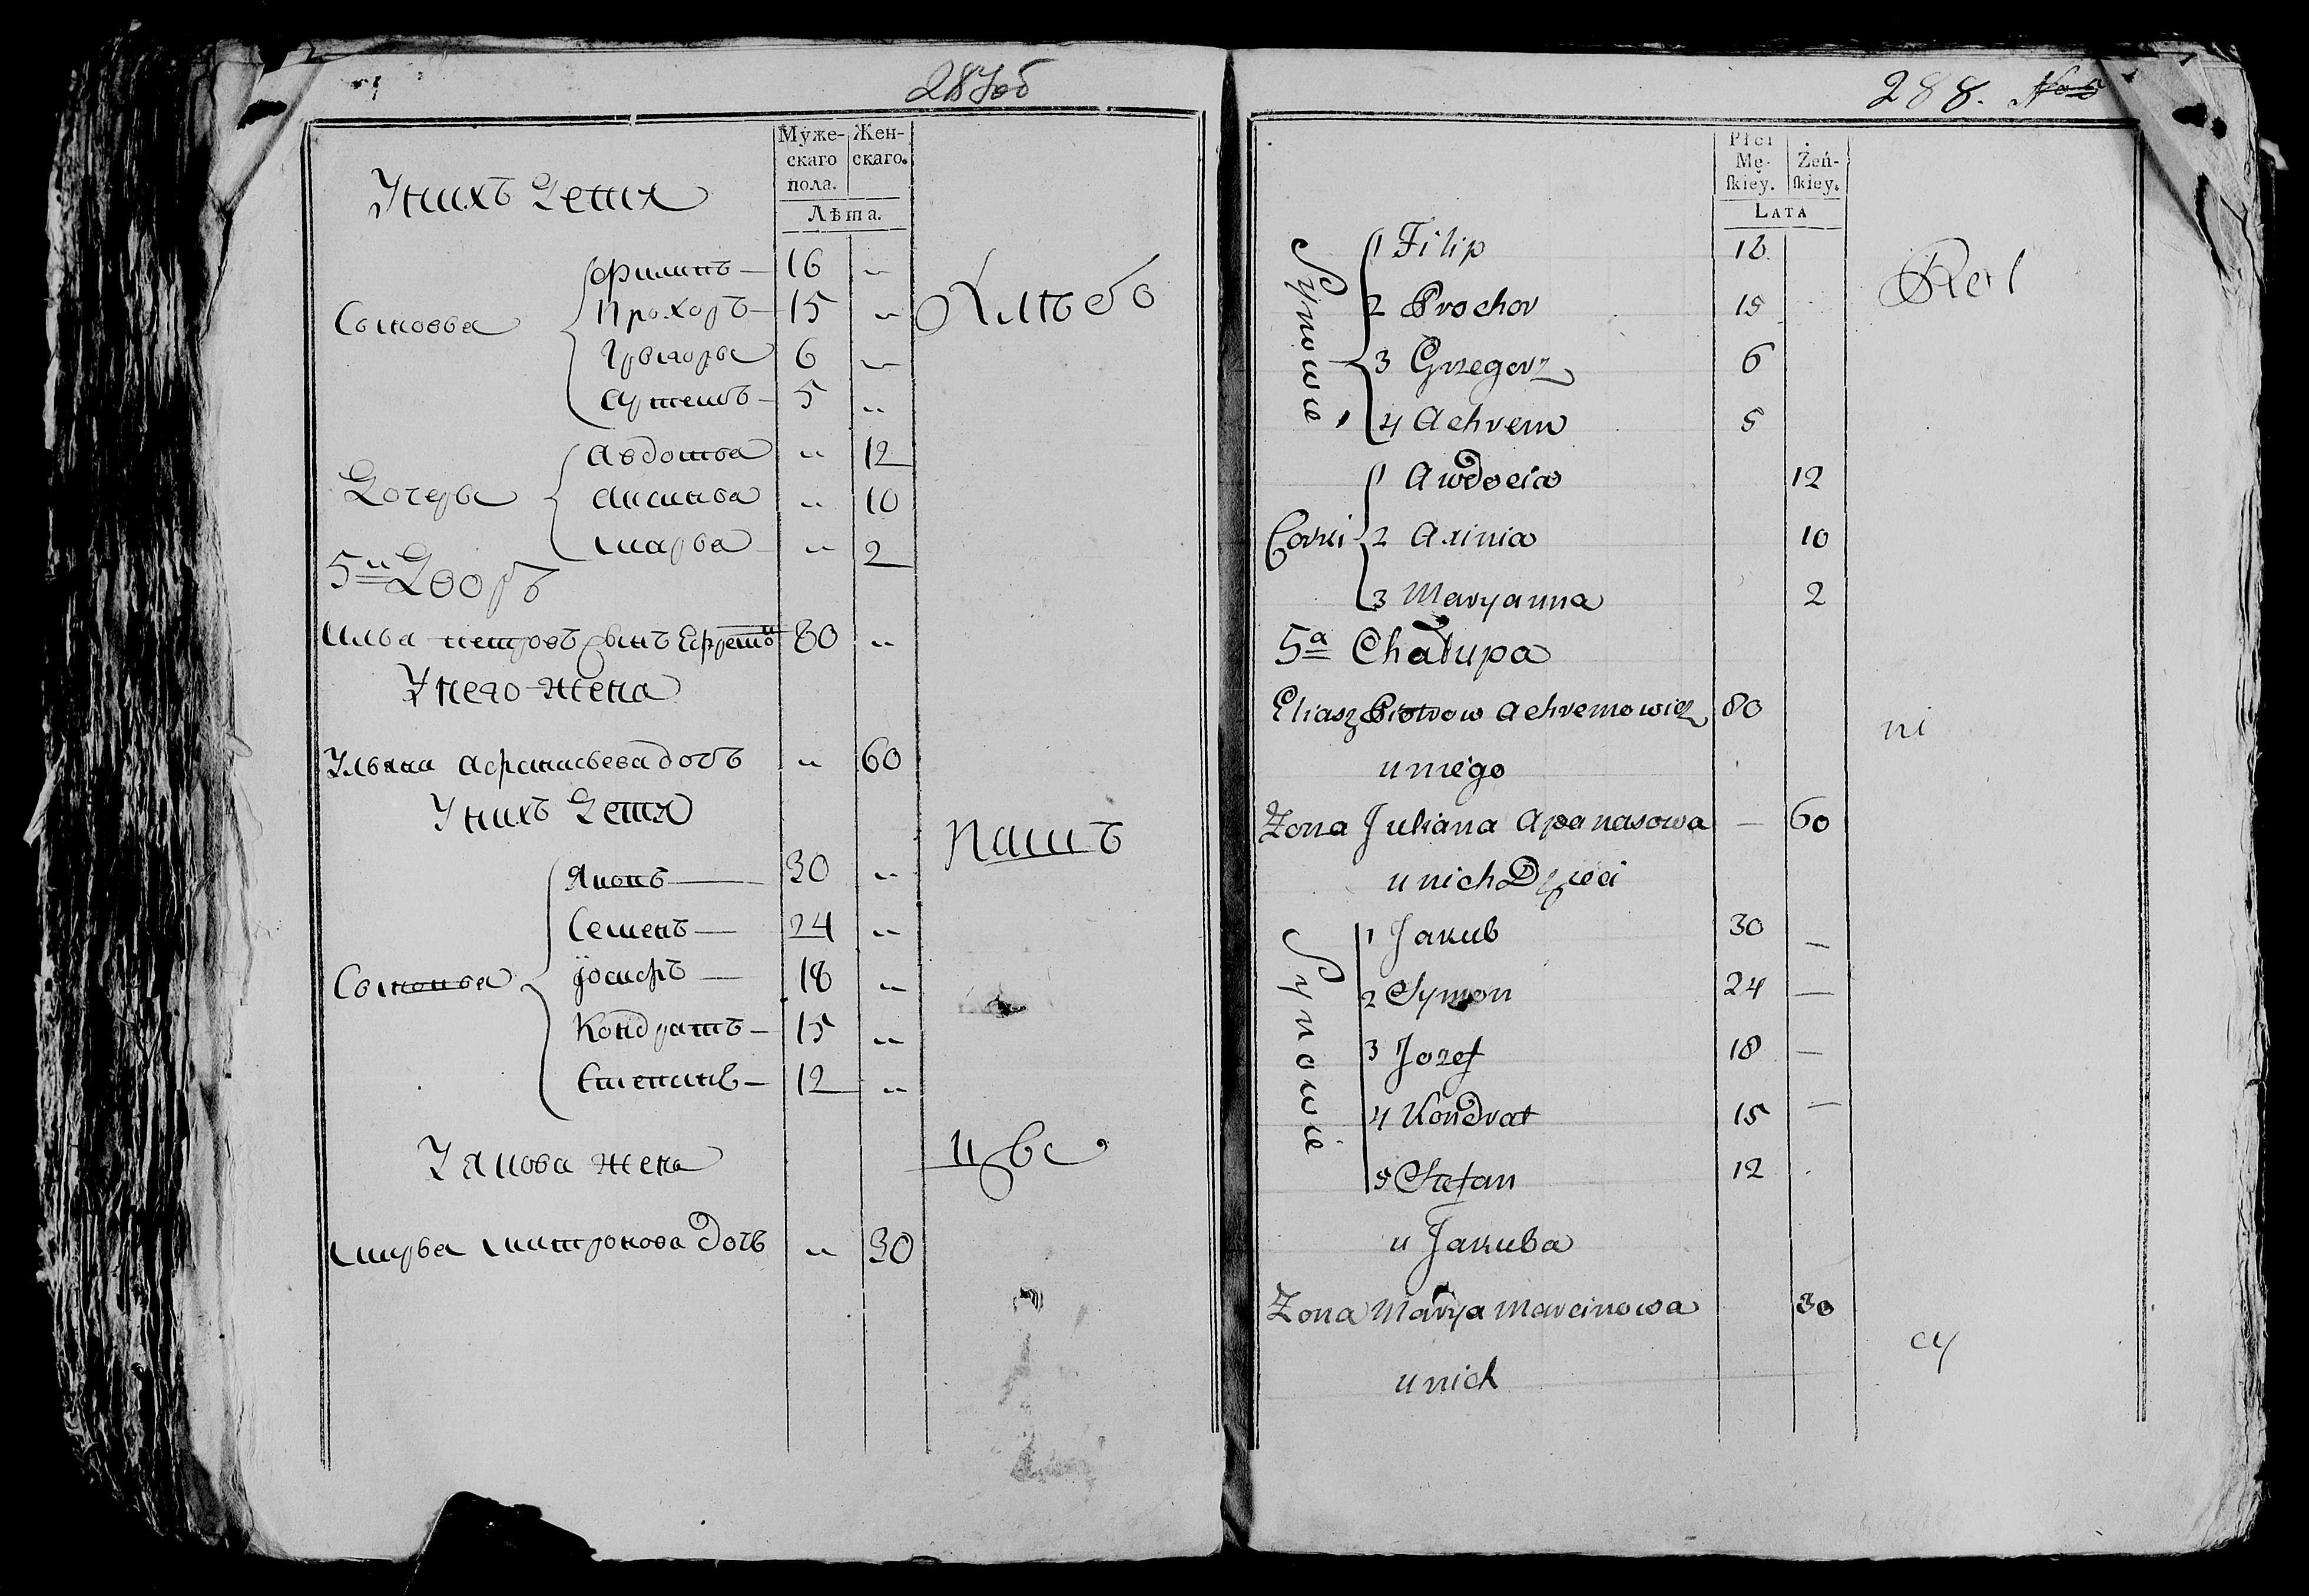 287об
Муже-
скаго
пола.
Жен-
скаго.
Лѣта.
У нихъ Дети
Сыновья
Филипъ — 16 „
Прохоръ — 15 „
Григорья 6 „
5 „
Хлѣбо
Дочерья
Авдотья „ 12
Аксинья „ 10
Марья „ 2
5й Дворъ
Илья Петровъ сынъ 80 „
У него жена
Ульяна Афанасьева дочь „ 60
У нихъ Дети
пашъ
Сыновья
Яковъ — 30 „
Семенъ — 24 „
Іосифъ — 18 „
Кондратъ — 15 „
Степанъ — 12 „
У Якова жена
Марья Митронова дочь „ 30
288.
Płci
Mę-
ſkiey.
Żeń-
ſkiey.
LATA
Synowie
1 Filip 16
2 Prochor 15
3 Grzegorz 6
4 Achrem 5
Rol
Corki
1 Awdocia 12
2 Axinia 10
3 Maryanna 2
5a Chałupa
Eliasz Piotrow Achremowicz 80
ni
u niego
Zona Juliana Apanasowa — 60
u nich Dzieci
Synowie
1 Jakub 30 —
2 Symon 24 —
3 Jozef 18 —
4 Kondrat 15 —
5 Stefan 12
u Jakuba
Zona Marya Marcinowa 30
cy
u nich